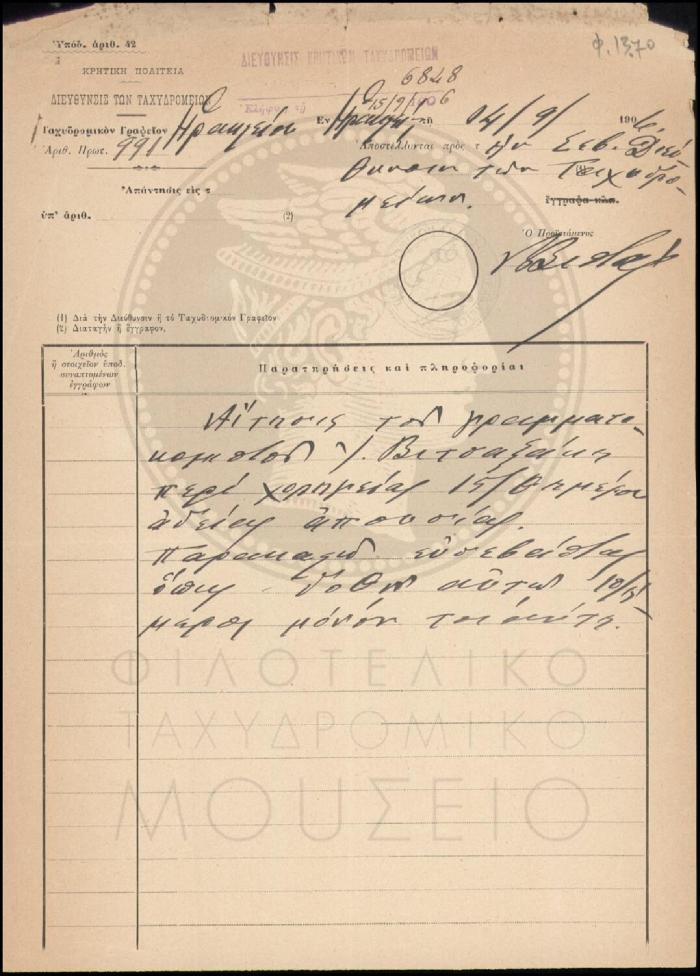 Ὑπόδ. ἀριθ. 42
φ. 1370
ΚΡΗΤΙΚΗ ΠΟΛΙΤΕΙΑ
ΔΙΕΥΘΥΝΣΙΣ ΚΡΗΤΙΚΩΝ ΤΑΧΥΔΡΟΜΕΙΩΝ
6828
ΔΙΕΥΘΥΝΣΙΣ ΤΩΝ ΤΑΧΥΔΡΟΜΕΙΩΝ
Ἐλήφθη τῇ 15/9/1906
Ταχυδρομικὸν Γραφεῖον Ἡρακλείου Ἐν τῇ 14/9/ 1906
Ἀριθ. Πρωτ. 991
Ἀποστέλλονται πρὸς τὴν Σεβ. Διεύ
θυνσιν τῶν Ταχυδρο-
μείων.
ἔγγραφα κλπ.
Ἀπάντησις εἰς τ
ὑπ' ἀριθ. (2)
Ὁ Προϊστάμενος
(1) Διὰ τὴν Διεύθυνσιν ἢ τὸ Ταχυδρομικὸν Γραφεῖον
(2) Διαταγὴν ἢ ἔγγραφον.
Ἀριθμὸς
ἢ στοιχεῖον ὑποδ.
συναπτομένων
ἐγγράφων
Παρατηρήσεις καὶ πληροφορίαι
Αἴτησις τοῦ γραμματο-
κομιστοῦ Βιτσαξάκη
περὶ χορηγείας 15/θημέρου
ἀδείας ἀπουσίας.
Παρακαλῶ εὐσεβάστως
ὅπως δοθῇ αὐτῷ 10/θή
μερος μόνον τοιαύτη.
ΦΙΛΟΤΕΛΙΚΟ
ΤΑΧΥΔΡΟΜΙΚΟ
ΜΟΥΣΕΙΟ